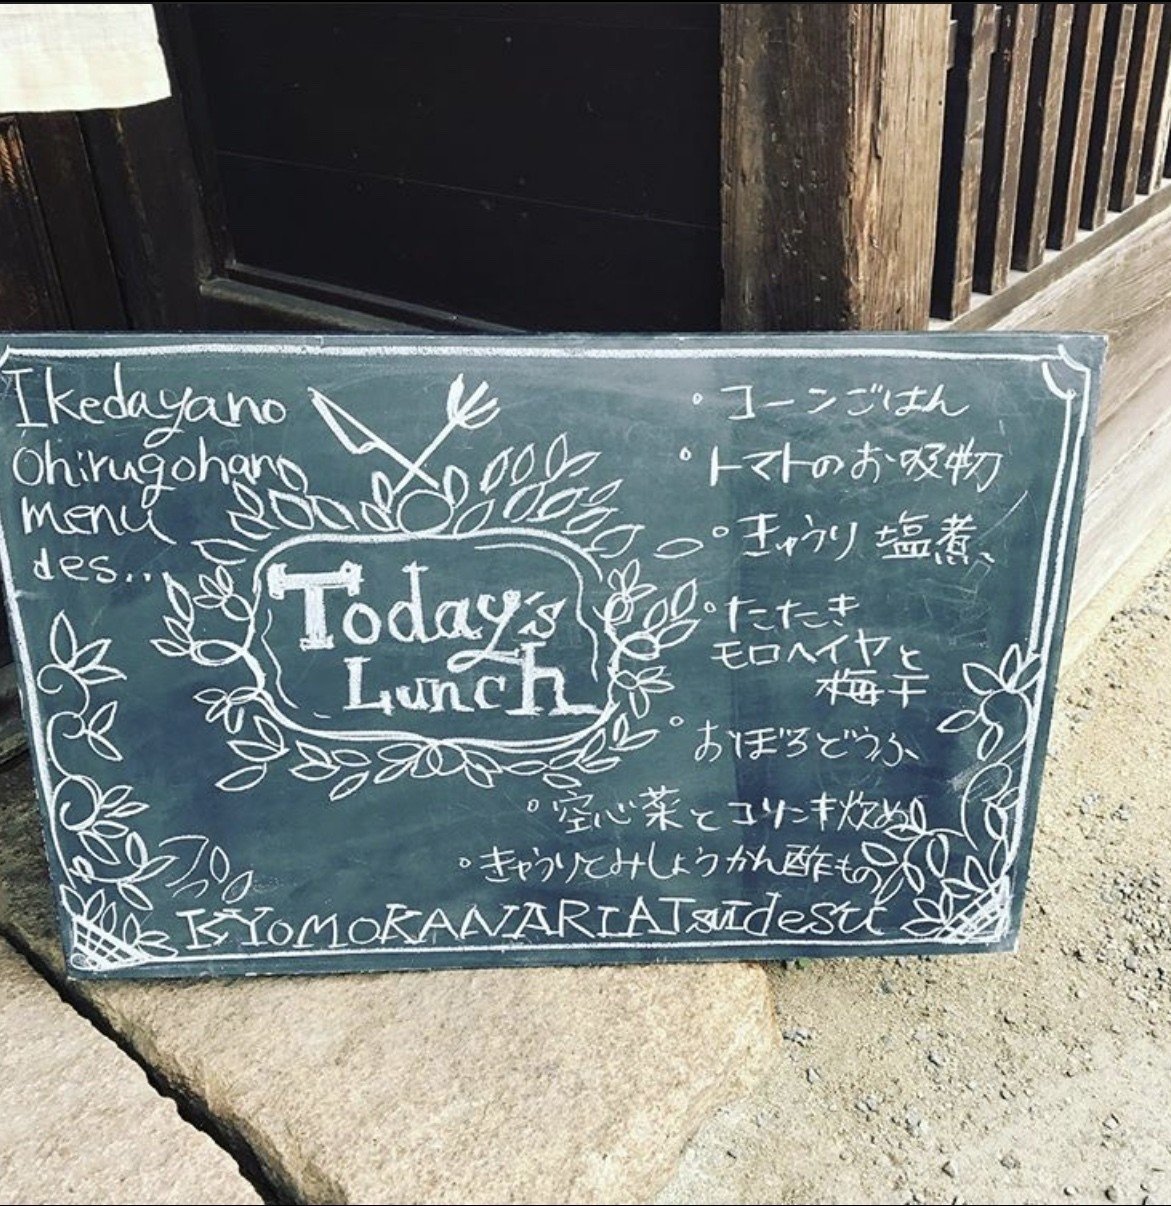 Ikedayano
Ohirugohan
menu
des...
Today's
Lunch
・コーンごはん
・トマトのお吸物
・きゅうり塩煮
・たたき
モロヘイヤと
梅干
・おぼろどうふ
・空心菜とコリンキ炊め
・きゅうりとみしょうかん酢もの
KYOMOKANARIATsuidesu